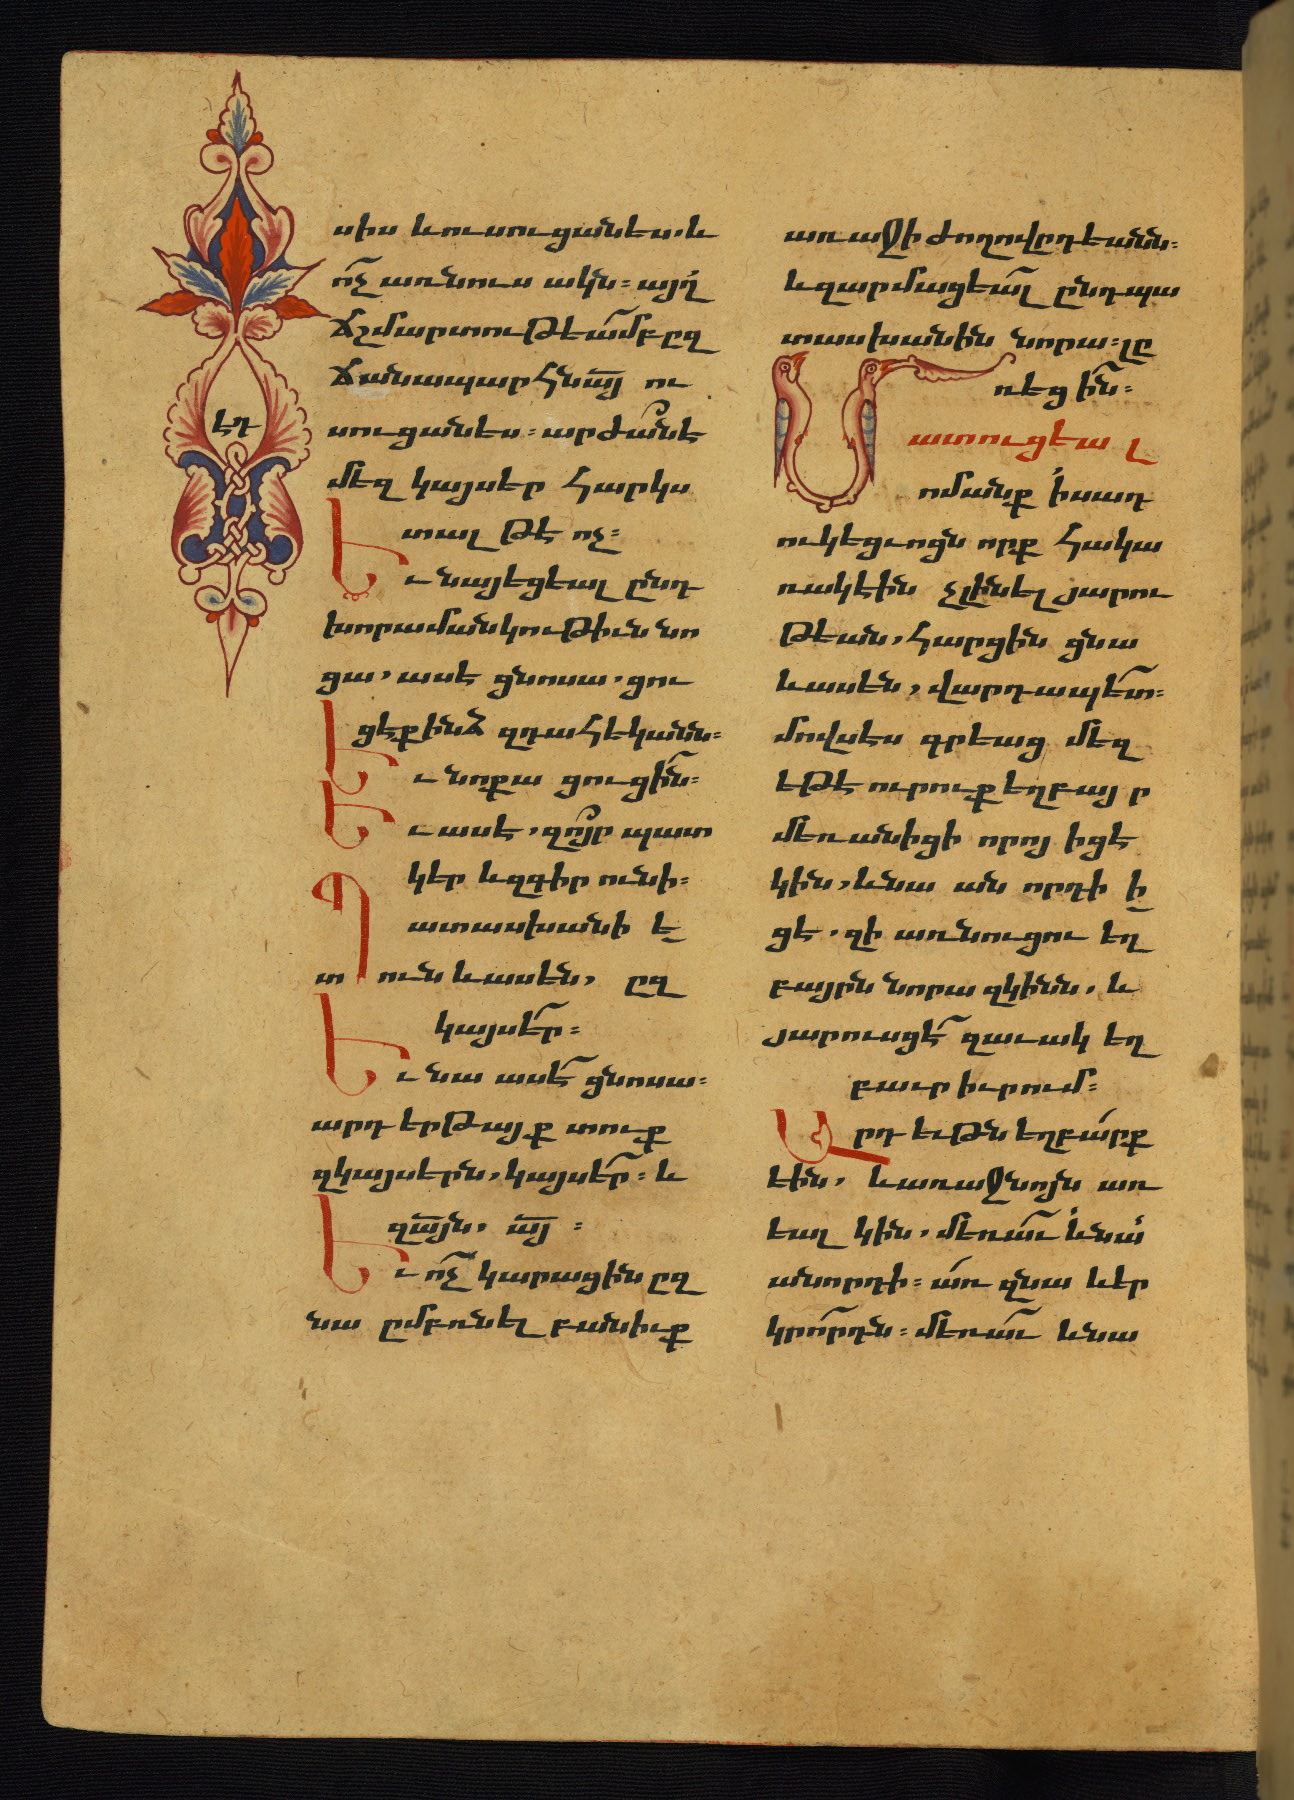 սիս և ուսուցանես. և
ո՛չ առնուս ակն։ այղ՛
ճշմարտութեա՛մբ ըզ
ճանապարհն ա՟յ ու
սուցանես։ արժա՛ն է
մեզ կայսեր հարկս
տալ թէ ոչ։
Ււ նայեցեալ ընդ
խորամանկութիւն նո
ցա, ասէ ցնոսա, ցու
ցէք ինձ զդահեկանն։
Եւ նոքա ցուցի՛ն։
Եւ ասէ, զո՞յր պատ
կեր և զգիր ունի։
Պատասխանի ե
տուն և ասեն, ըզ
կայսե՛ր։
Եւ նա ասէ՛ ցնոսա։
արդ երթայք տուք
զկայսերն, կայսե՛ր։ և
զա՟յն, ա՟յ։
Եւ ո՛չ կարացին ըզ
նա ըմբռնել բանիւք
էդ
առաջի ժողովըրդեանն։
և զարմացեա՛լ ընդ պա
տասխանին նորա։ լը
ռեցի՛ն։
Մատուցեալ
ոմանք ի սադ
ուկեցւոցն որք հակա
ռակէին չլինել յարու
թեան, հարցին ցնա
և ասեն, վարդապե՛տ։
մովսէս գրեաց մեզ
եթէ ուրուք եղբայր
մեռանիցի որոյ իցէ
կին, և նա ան որդի ի
ցէ. զի առնուցու եղ
բայրն նորա զկինն, և
յարուսցէ՛ զաւակ եղ
բաւր իւրում։
Արդ եւթն եղբա՛րք
էին, և առաջնոյն առ
եալ կին, մեռա՛ւ և նա՛
անորդի։ ա՛ռ զնա և եր
կրո՛րդն։ մեռա՛ւ և նա